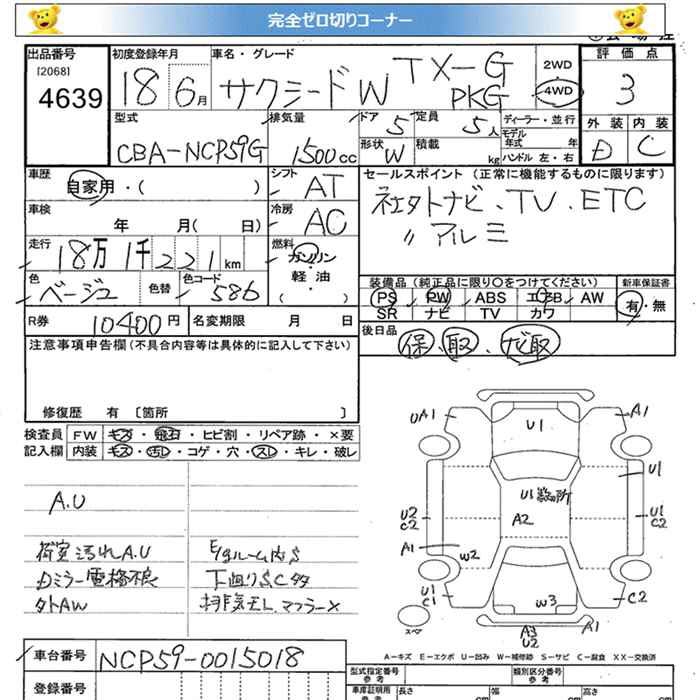 完全ゼロ切りコーナー
出品番号
[2068]
4639
初度登録年月
18 6月
車名・グレード
サクシードW TX-G PKG
2WD
4WD
評価点
3
外装 内装
D C
型式
CBA-NCP59G
排気量
1500cc
ドア
5
定員
5人
形状
W
積載
kg
ディーラー・並行
モデル年式 年
ハンドル 左・右
車歴
自家用・( )
シフト
AT
車検
年 月( 日)
冷房
AC
走行
18万1千221km
燃料
ガソリン
軽・油
・( )
色
ベージュ
色替
色コード
586
セールスポイント(正常に機能するものに限ります)
社外ナビ、TV、ETC
〃アルミ
装備品(純正品に限り○をつけてください)
PS PW ABS エアB AW
SR ナビ TV カワ
新車保証書
有・無
R券
10400円
名変期限 月 日
後日品
保、取、ナビ取
注意事項申告欄(不具合内容等は具体的に記入して下さい)
修復歴 有 [箇所 ]
検査員
記入欄
FW キズ・飛石・ヒビ割・リペア跡・×要
内装 キズ・汚レ・コゲ・穴・スレ・キレ・破レ
A.U
荷室汚れA.U
Dミラー電格不良
タトAW
E/gルーム内S
下廻りSC多
排気モレ、マフラー×
UA1
A1
U1
U1
U1
A2
U2
C2
U1
C2
A1
W2
U1
C1
W3
C2
A3
U2
スペア
A-キズ E-エクボ U-凹み W-補修跡 S-サビ C-腐食 XX-交換済
車台番号
NCP59-0015018
登録番号
型式指定番号
参考
類別区分番号
参考
車庫証明用
参考
長さ
cm
幅
cm
高さ